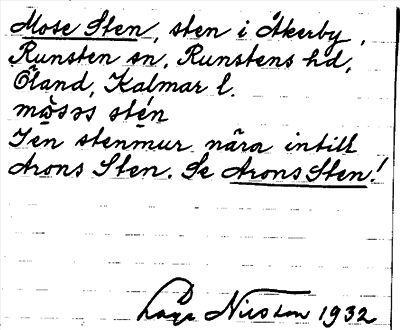 Mose Sten, sten i Åkerby,
Runsten sn, Runstens hd,
Öland, Kalmar l.
mɷ̀səs stén
I en stenmur nära intill
Arons Sten. Se Arons Sten!
Nilsson 1932